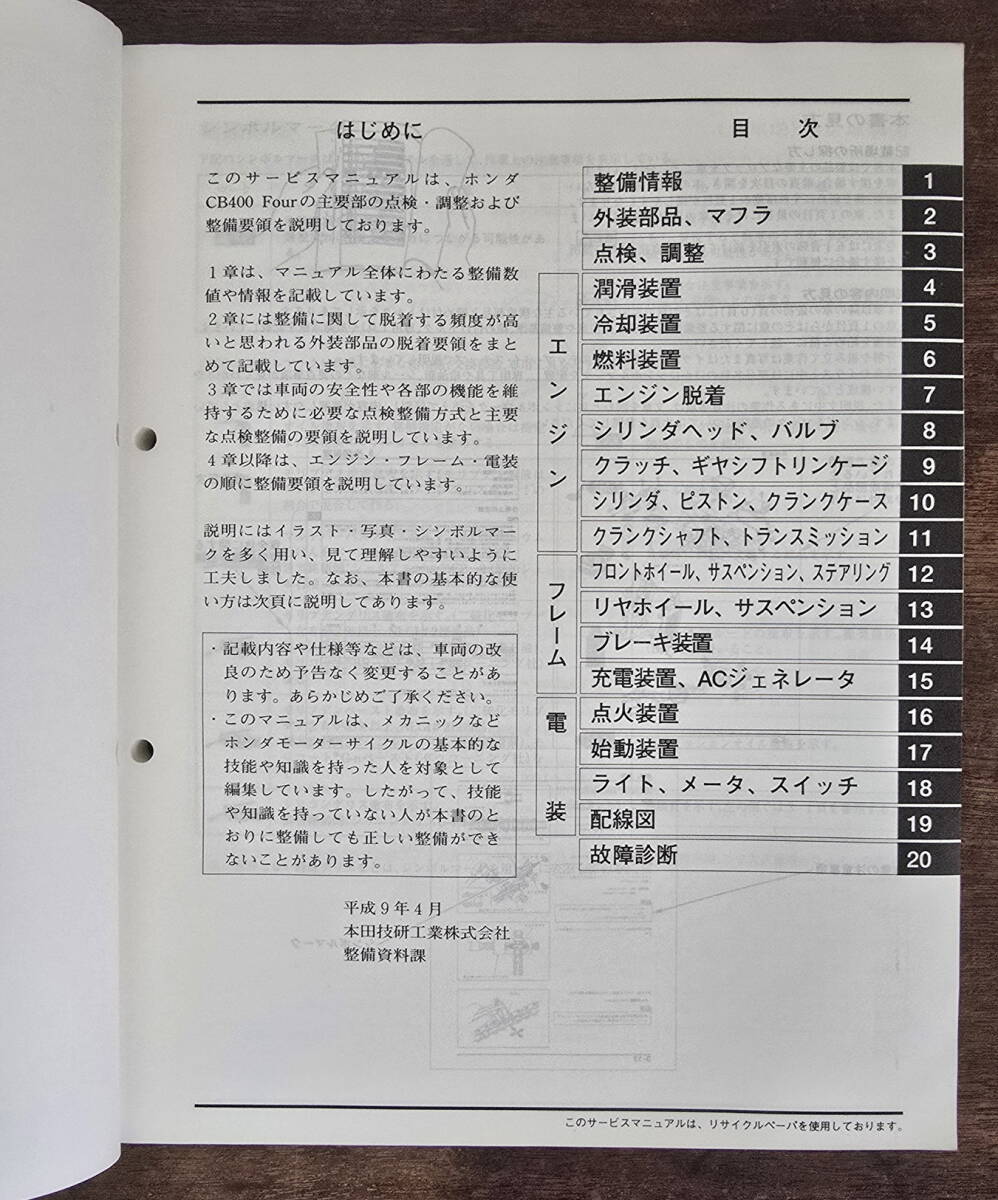 はじめに
このサービスマニュアルは、ホンダ
CB400 Fourの主要部の点検・調整および
整備要領を説明しております。
1章は、マニュアル全体にわたる整備数
値や情報を記載しています。
2章には整備に関して脱着する頻度が高
いと思われる外装部品の脱着要領をまと
めて記載しています。
3章では車両の安全性や各部の機能を維
持するために必要な点検整備方式と主要
な点検整備の要領を説明しています。
4章以降は、エンジン・フレーム・電装
の順に整備要領を説明しています。
説明にはイラスト・写真・シンボルマー
クを多く用い、見て理解しやすいように
工夫しました。なお、本書の基本的な使
い方は次頁に説明してあります。
・記載内容や仕様等などは、車両の改
良のため予告なく変更することがあ
ります。あらかじめご了承ください。
・このマニュアルは、メカニックなど
ホンダモーターサイクルの基本的な
技能や知識を持った人を対象として
編集しています。したがって、技能
や知識を持っていない人が本書のと
おりに整備しても正しい整備ができ
ないことがあります。
平成9年4月
本田技研工業株式会社
整備資料課
目 次
整備情報 1
外装部品、マフラ 2
点検、調整 3
エンジン
潤滑装置 4
冷却装置 5
燃料装置 6
エンジン脱着 7
シリンダヘッド、バルブ 8
クラッチ、ギヤシフトリンケージ 9
シリンダ、ピストン、クランクケース 10
クランクシャフト、トランスミッション 11
フレーム
フロントホイール、サスペンション、ステアリング 12
リヤホイール、サスペンション 13
ブレーキ装置 14
充電装置、ACジェネレータ 15
電装
点火装置 16
始動装置 17
ライト、メータ、スイッチ 18
配線図 19
故障診断 20
このサービスマニュアルは、リサイクルペーパを使用しております。